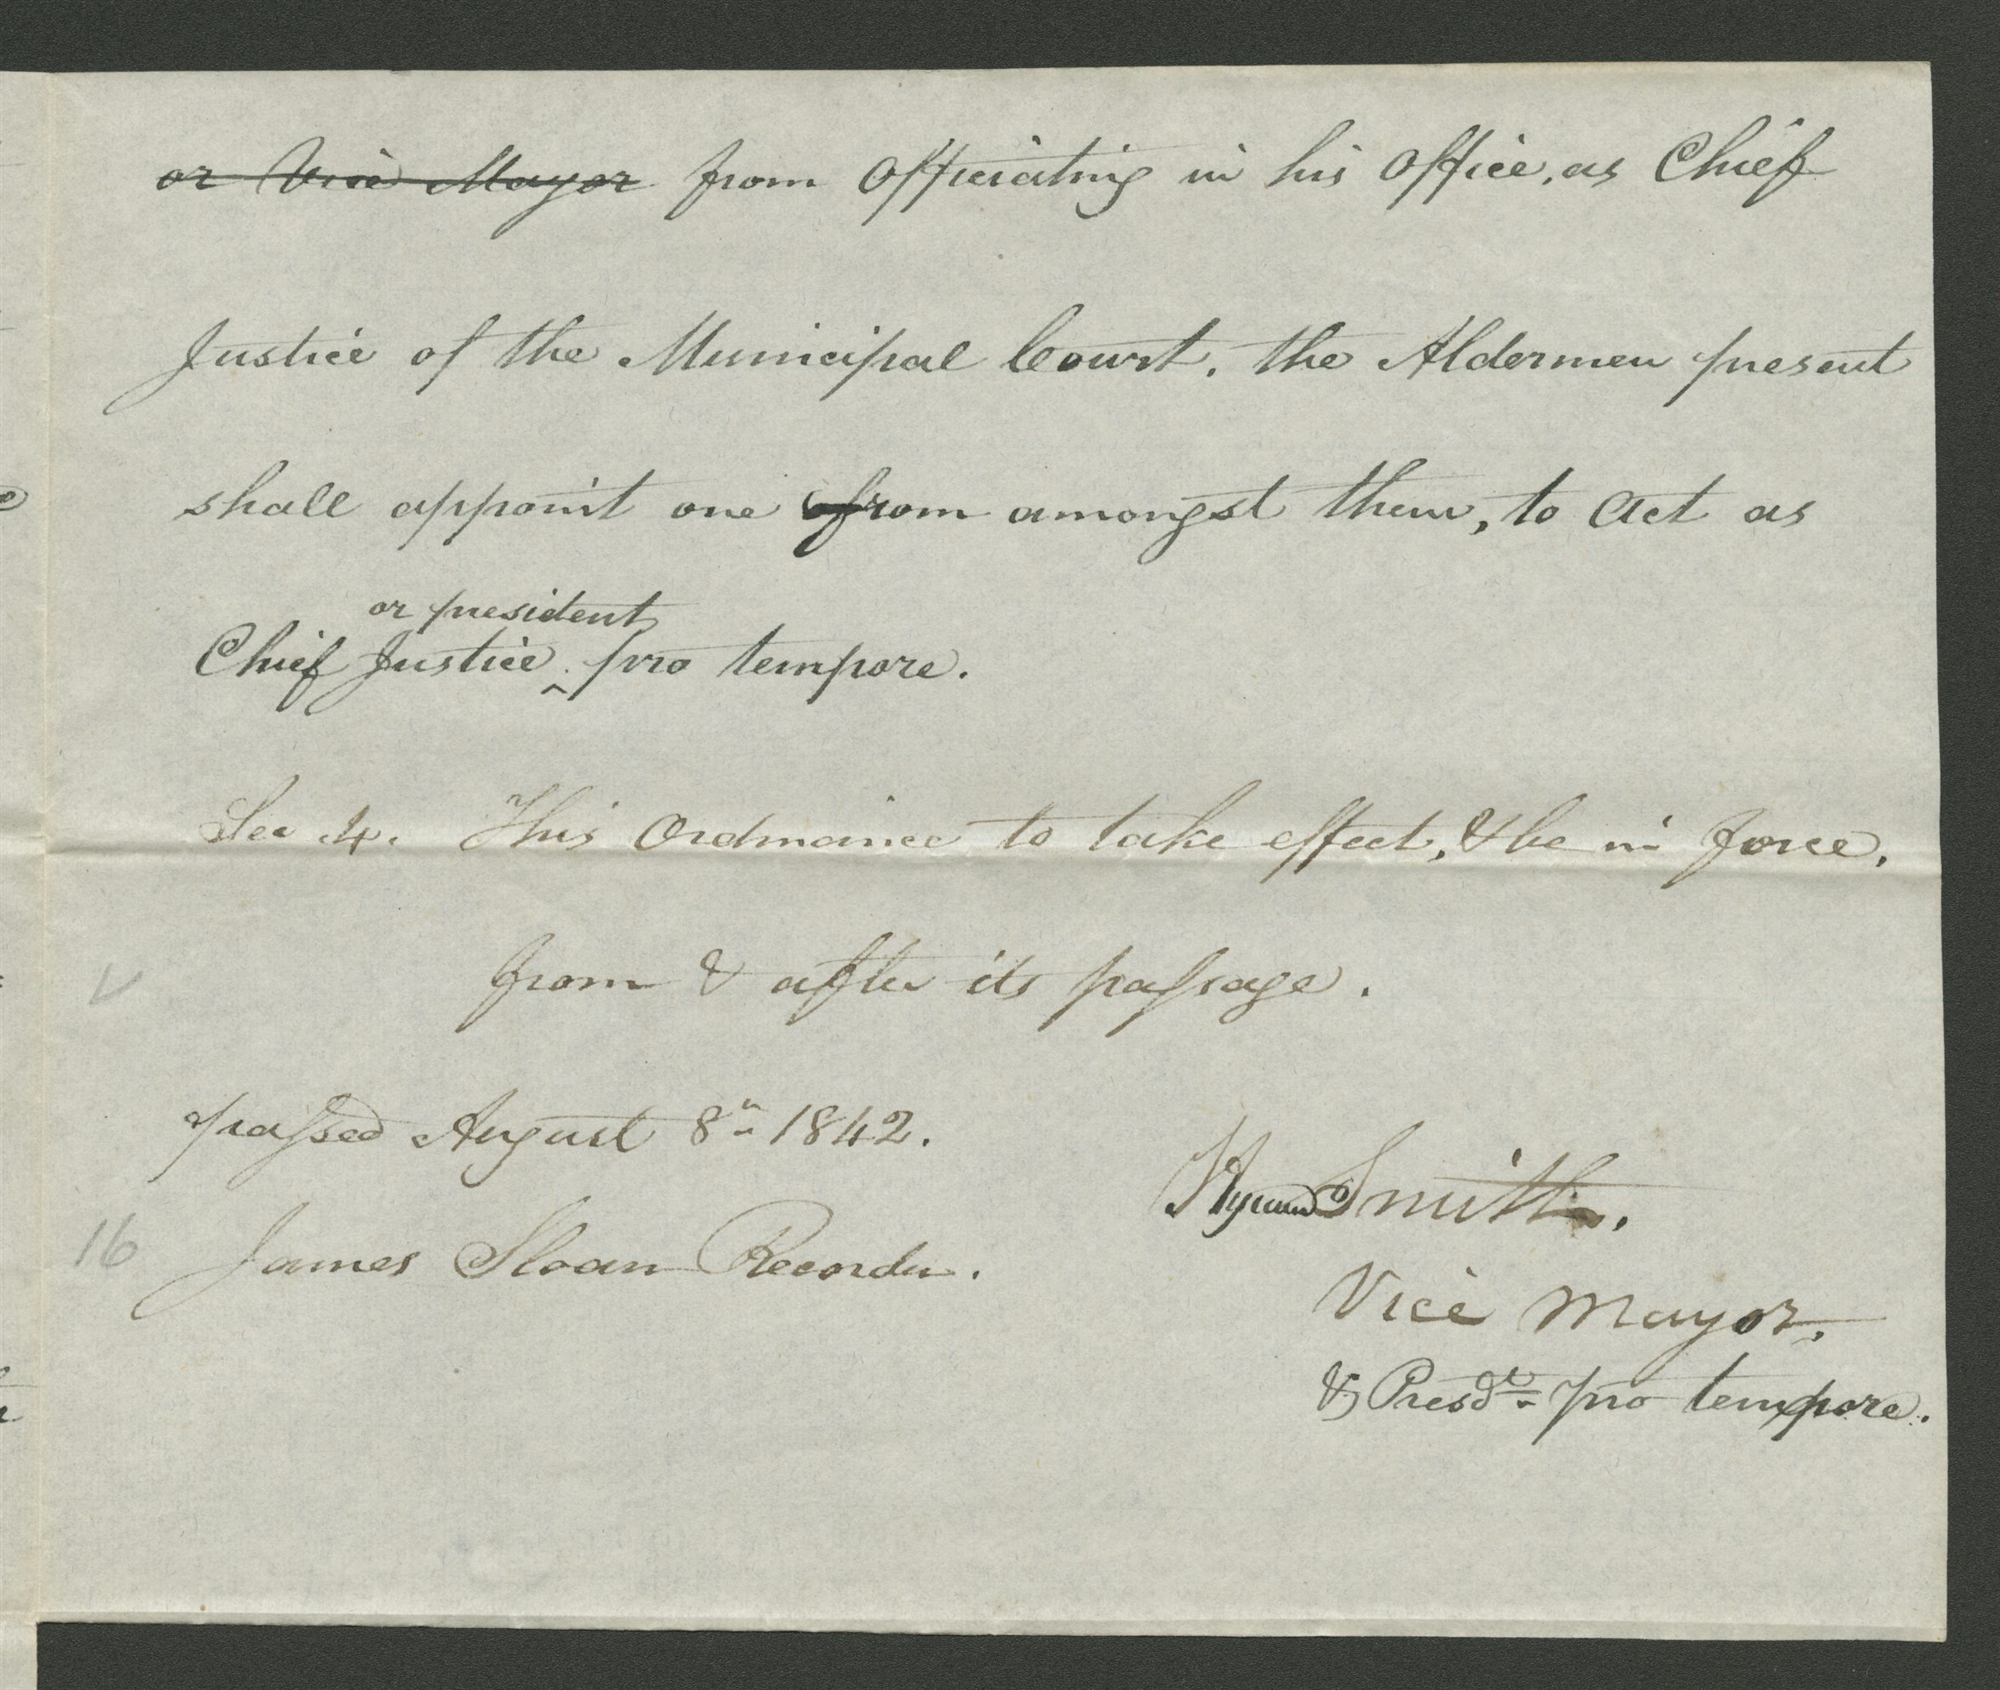 or Vice Mayor from Officiating in his Office, as Chief
Justice of the Municipal Court, the Aldermen present
shall appoint one from amongst them, to Act as
or president
Chief Justice ‸ pro tempore.
Sec 4. This Ordinance to take effect, & be in force,
from & after its paſsage.
paſsed August 8th 1842.
Hyrum Smith,
16 James Sloan Recorder.
Vice Mayor,
& Presdt pro tempore.